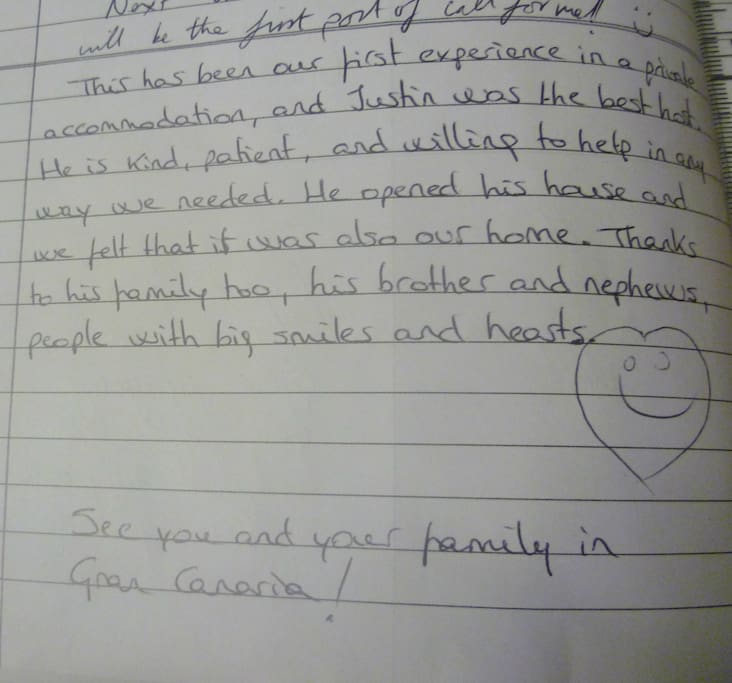 Next
will be the first port of call for me!! :)
This has been our first experience in a private
accommodation, and Justin was the best host.
He is kind, patient, and willing to help in any
way we needed. He opened his house and
we felt that it was also our home. Thanks
to his family too, his brother and nephews,
people with big smiles and hearts.
See you and your family in
Gran Canaria!